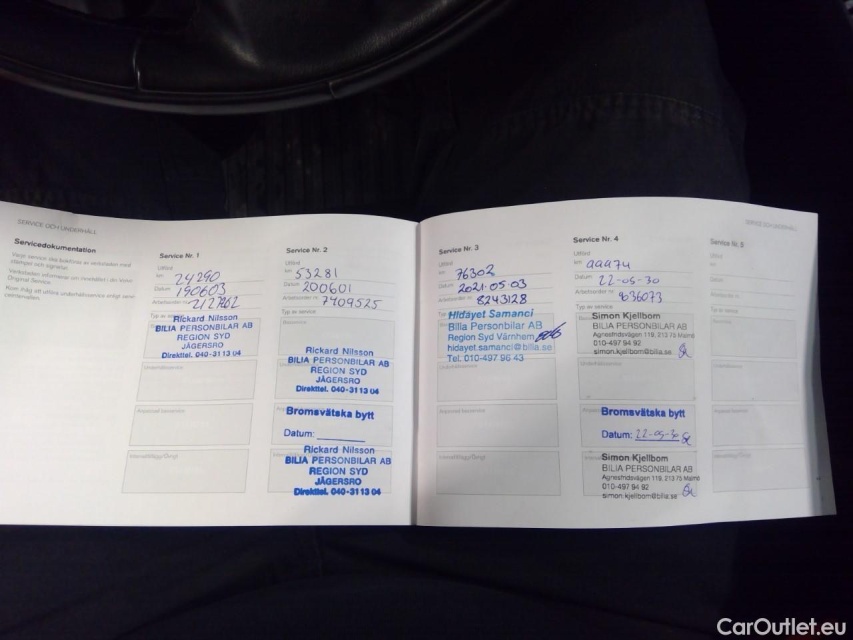 SERVICE OCH UNDERHÅLL
Servicedokumentation
Varje service ska bokföras av verkstaden med
stämpel och signatur.
Original Service.
Service Nr. 1
Utförd
km 24290
Datum 190603
Arbetsorder nr
Typ av service
Rickard Nilsson
BILIA PERSONBILAR AB
REGION SYD
JÄGERSRO
Direkttel. 040-31 13 04
Underhållsservice
Anpassad basservice
Service Nr. 2
Utförd
km 53281
Datum 200601
Arbetsorder nr 7409525
Typ av service
Basservice
Rickard Nilsson
BILIA PERSONBILAR AB
REGION SYD
JÄGERSRO
Direkttel. 040-31 13 04
Bromsvätska bytt
Datum:
Rickard Nilsson
BILIA PERSONBILAR AB
REGION SYD
JÄGERSRO
Direkttel. 040-31 13 04
SERVICE OCH UNDERHÅLL
Service Nr. 3
Utförd
km 76302
Datum 2021-05-03
Arbetsorder nr 8243128
Typ av service
Hidayet Samanci
Bilia Personbilar AB
Region Syd Värnhem
hidayet.samanci@bilia.se
Tel. 010-497 96 43
Underhållsservice
Anpassad basservice
Service Nr. 4
Utförd
km
Datum 22-05-30
Arbetsorder nr
Typ av service
Simon Kjellbom
BILIA PERSONBILAR AB
Agnesfridsvägen 119, 213 75 Malmö
010-497 94 92
simon.kjellbom@bilia.se
Underhållsservice
Bromsvätska bytt
Datum: 22-05-30
Simon Kjellbom
BILIA PERSONBILAR AB
Agnesfridsvägen 119, 213 75 Malmö
010-497 94 92
simon.kjellbom@bilia.se
Service Nr. 5
Utförd
km
Datum
Arbetsorder nr
Typ av service
Basservice
Underhållsservice
Anpassad basservice
CarOutlet.eu